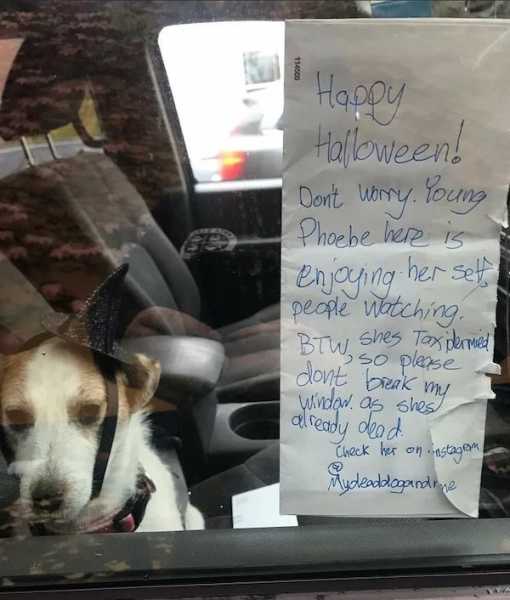 114020
Happy
Halloween!
Don't worry. Young
Phoebe here is
enjoying her self
people watching.
BTW, shes Taxidermied
, so please
dont break my
window. as shes
already dead.
Check her on instagram
@
Mydeaddogandme